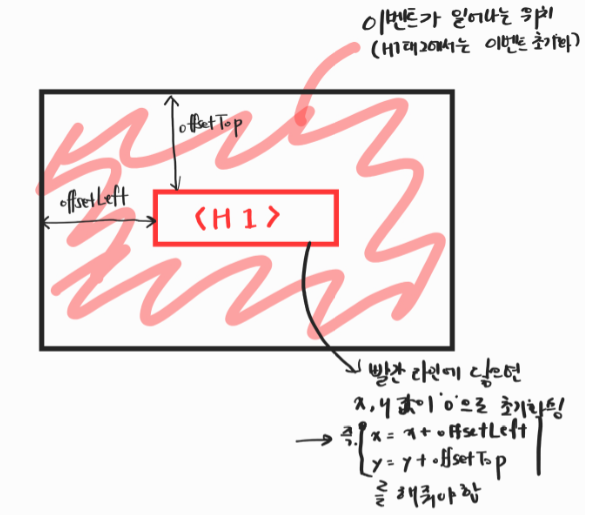 이벤트가 일어나는 위치
(H1태그에서는 이벤트 초기화)
offsetTop
offsetLeft
<H1>
빨간 라인에 닿으면
x, y 값이 '0'으로 초기화됨
즉. x = x + offsetLeft
y = y + offsetTop
를 해줘야함